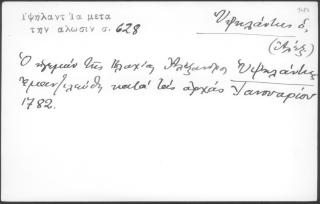 Ὑψηλάντ Ἰα μετα
την αλωσιν σ. 628
Ὑψηλάντης δ,
(Ἀλέξ.)
Ὁ ἡγεμὼν τῆς Βλαχίας Ἀλέξανδρος Ὑψηλάντης
κατὰ τὰς ἀρχὰς Ἰανουαρίου
1782.